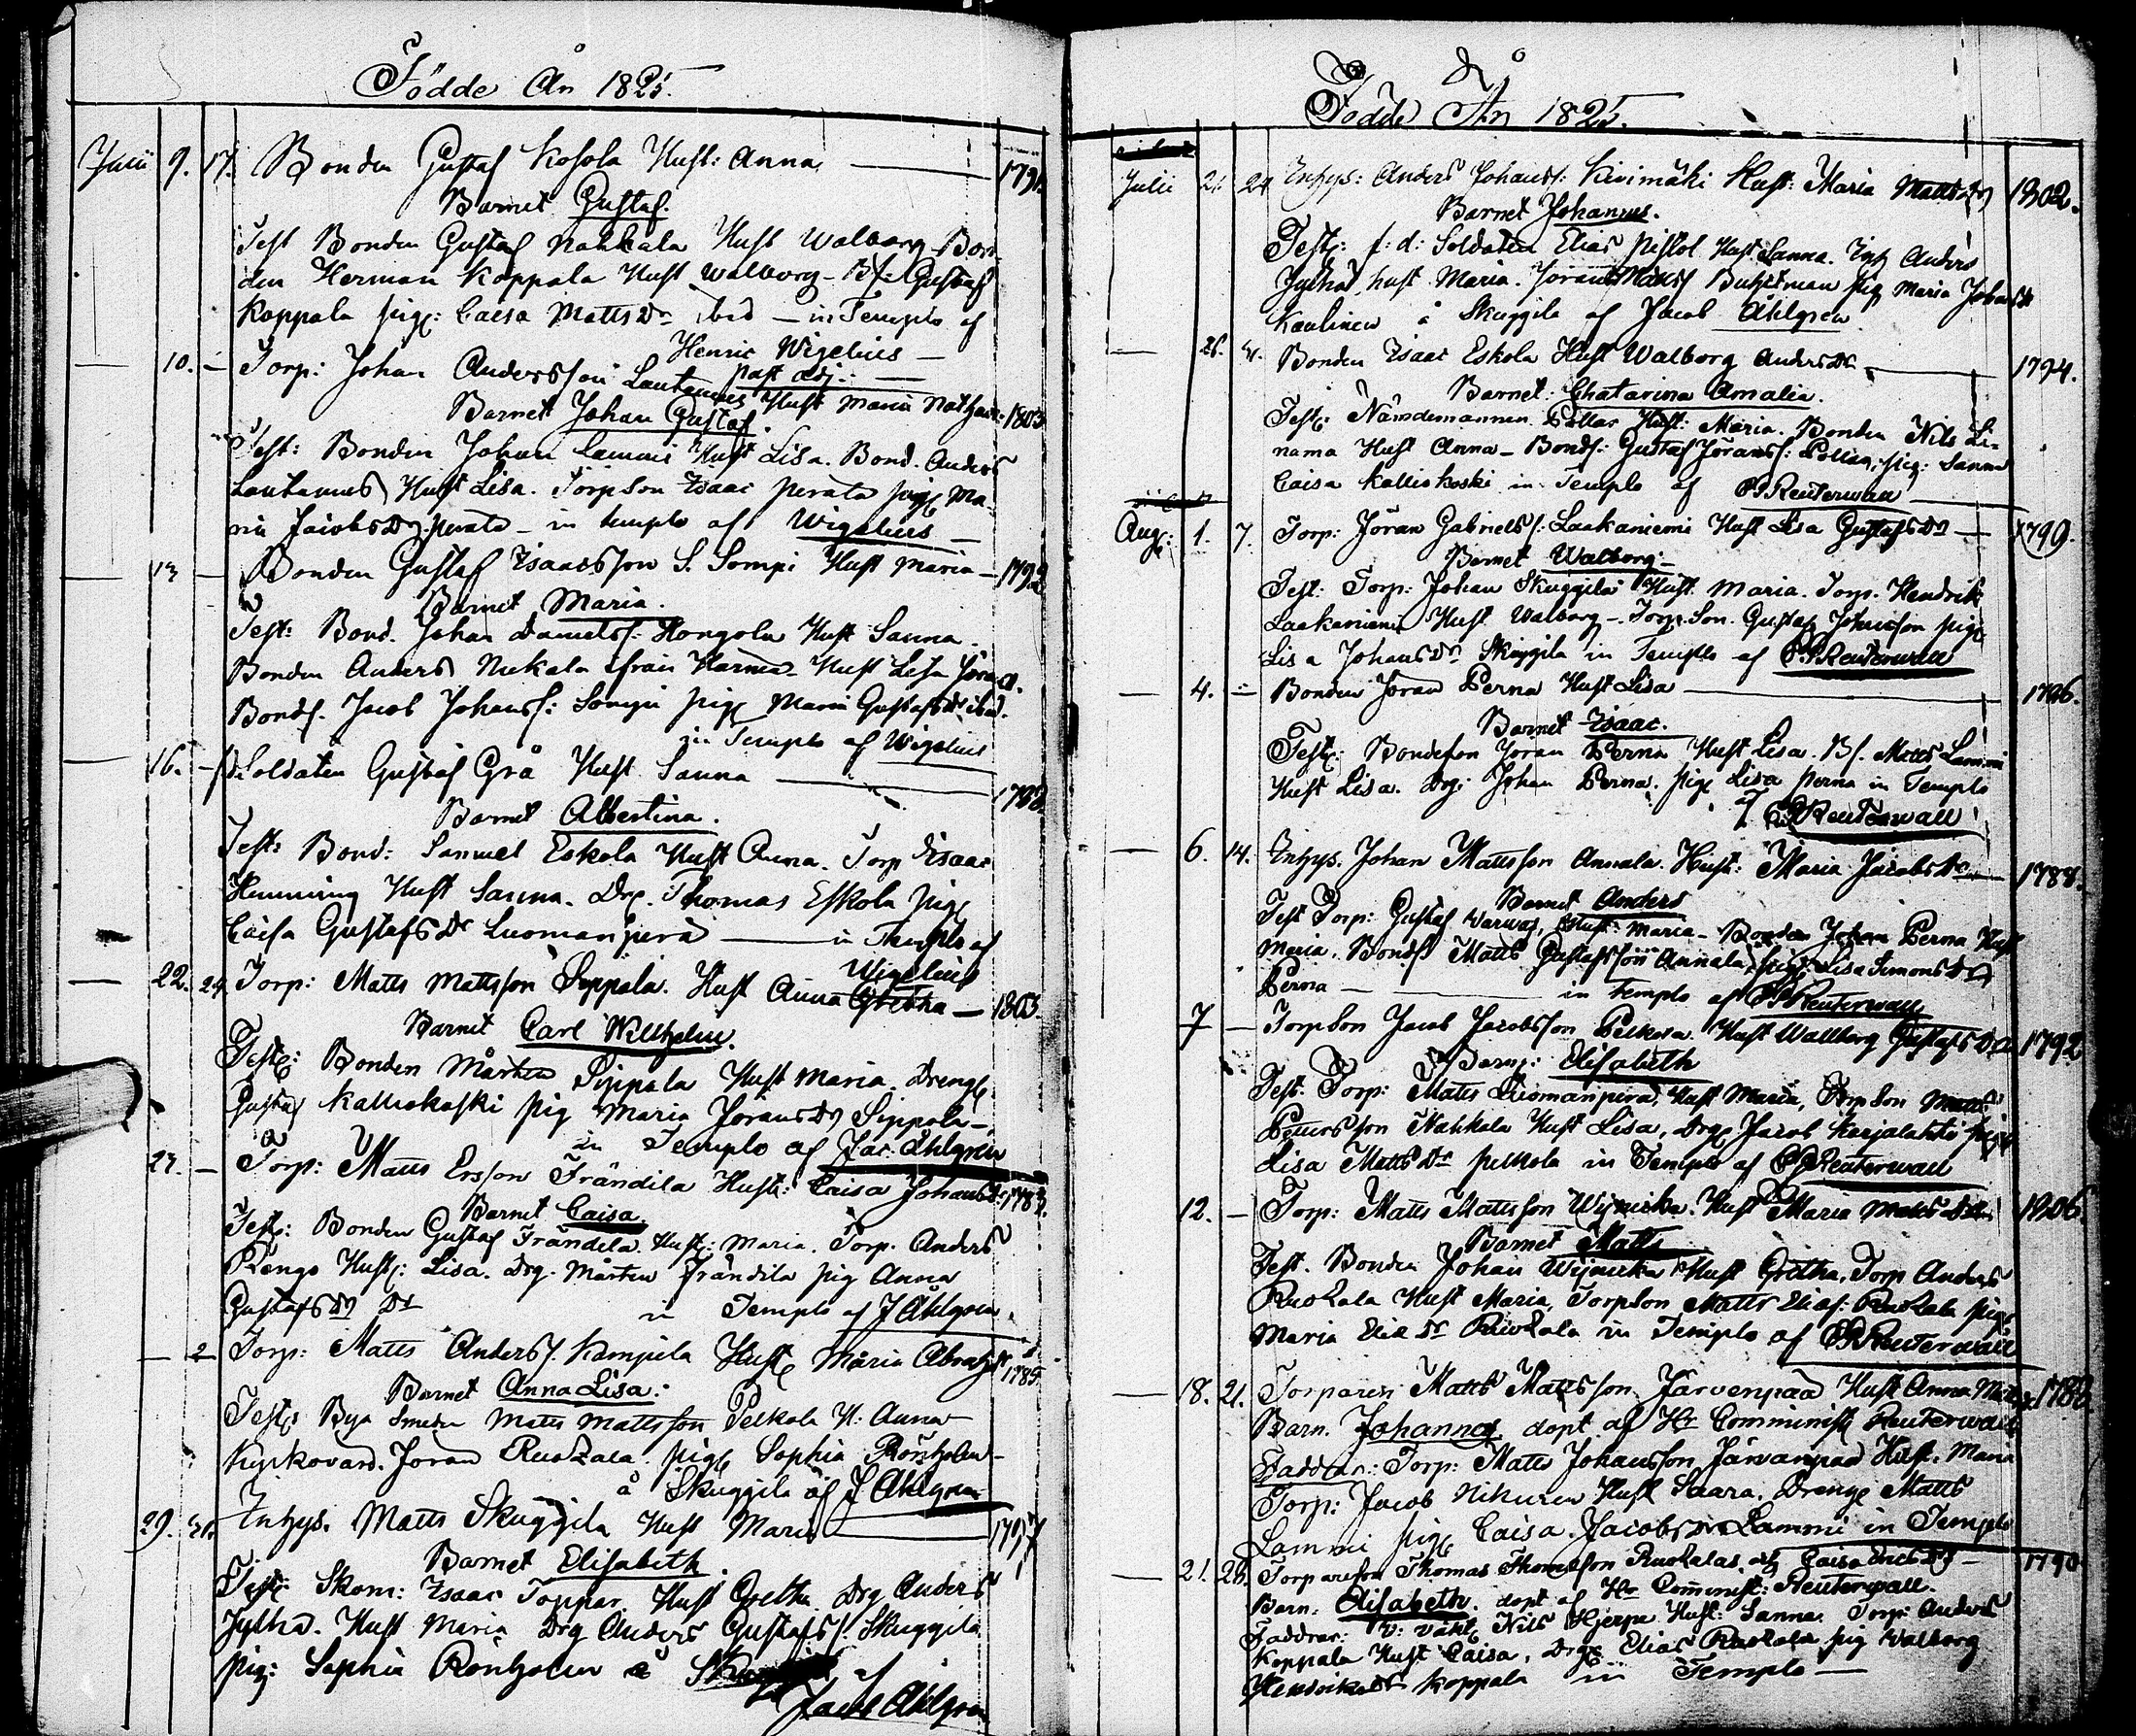 Födde År 1825.
Julii 9. 17. Bonden Gustaf Kosola Hust: Anna — 1791.
Barnet Gustaf.
Test Bonden Gustaf Nahkala Hust Walborg Bon-
den Herman Koppala Hust Walborg - Bs: Gustaf
Koppala pig: Caisa Matts Dr ibid — in Templo af
Henric Wigelius —
past adj: —
— 10. — Torp: Johan Andersson Lautamus Hust Maria 1803
Barnet Johan Gustaf.
Test: Bonden Johan Lammi Hust Lisa. Bond. Anders
Lautamus Hust Lisa. Torpson Isaac Perata pig Ma-
ria Jacobs Dr Perata — in templo af Wigelius —
— 13 — Bonden Gustaf Isaacsson S. Sompi Hust Maria — 1792
Barnet Maria.
Test: Bond. Johan Daniels: Hongola Hust Sanna
Bonden Anders Nukala ifrån Harma Hust Lisa
Bonds. Jacob Johanss: Sompi pig Maria Gustafs Dr ibid.
in Templo af Wigelius
— 16. — fd Soldaten Gustaf Grå Hust Sanna —
Barnet Albertina.
Test: Bond: Samuel Eskola Hust Anna. Torp Isaac
Hemming Hust Sanna. Drg. Thomas Eskola pig
Caisa Gustafs Dr Luomanperä — in Templo af
Wigelius
— 22. 24. Torp: Matts Mattsson Seppala. Hust Anna Gretha — 1803.
Barnet Carl Wilhelm.
Test: Bonden Mårten Sippala Hust Maria. Dreng
Gustaf Kalliokoski pig Maria Jörans Dr Sippola —
in Templo af Jac. Ahlgren
23. — Torp: Matts Ersson Frändila Hust: Caisa Johans Dr
Barnet Caisa.
Test: Bonden Gustaf Frändila. Hust: Maria. Torp. Anders
Rengo Hust: Lisa. Drg. Mårten Frändila pig Anna
Gustafs Dr Do in Templo af J Ahlgren.
— 2 Torp: Matts Anders: Kampila Hust Maria 1785
Barnet Anna Lisa.
Test: Bya Smeden Matts Mattsson Pelkola H: Anna
Kyrkovard. Joran Ruokala. pig Sophia Rönholm —
å Skuggila af J Ahlgren
29. 31. Inhys. Matts Skuggila Hust Maria — 1797
Barnet Elisabeth.
Test: Skom: Isaac Toppar. Hust Gretha. Drg Anders
Jylhä. Hust Maria Drg Anders Gustafs: Skuggila
pig: Sophia Rönholm å af
Jacob Ahlgren
Födde År 1825.
Julii 21. 24. Inhys: Anders Johanss: Kivimäki Hust: Maria Matts Dr 1802.
Barnet Johannes.
Test: f: d: Soldaten Elias Pistol Hust Sanna. Inh Anders
Jylhä, hust Maria. pig Maria Johans Dr
Kaulinen å Skuggila af Jacob Ahlgren
— 26. 31. Bonden Isaac Eskola Hust Walborg Anders Dr — 1794.
Barnet: Chatarina Amalia.
Test: Nämdemannen Pollar Hust: Maria. Bonden Nils Li-
nama Hust Anna — Bonds: Gustaf Jöranss: Pollar, pig: Sanna
Caisa Kalliokoski in Templo af Reuterwall
Aug: 1. 7. Torp: Jöran Gabriels: Laakaniemi Hust Lisa Gustafs Dr — 1799.
Barnet Walborg —
Test: Torp: Johan Skuggila Hust. Maria. Torp. Hendrik
Laakaniemi Hust Walborg — Torp. Son. Gustaf pig
Lisa Johans Dr Skuggila in Templo af Reuterwall
— 4. — Bonden Joran Perna Hust Lisa — 1796.
Barnet Isaac.
Test: Bondeson Joran Perna Hust Lisa. Bs. Matts Lammi
Hust Lisa. Drg: Johan Perna. pig Lisa Perna in Templo
af Reuterwall
— 6. 14. Inhys. Johan Mattsson Annala. Hust: Maria Jacobs Dr — 1788.
Barnet Anders
Test Torp: Gustaf Hust Maria — Bonden Johan Perna Hust
Maria. Bonds Matts Gustafsson Annala, pig Lisa Simons Dr
Perna — in Templo af Reuterwall
7 — Torpson Jacob Jacobsson Pelkola Hust Wallborg Gustafs Dr 1792
Barn: Elisabeth
Test: Torp: Matts Luomanperä, Hust Maria, Torpson Matts
Pettersson Nahkala Hust Lisa, Drg Jacob Karjalahti pig
Lisa Matts Dr Pelkola in Templo af Reuterwall
12. — Torp: Matts Mattsson Hust Maria Matts Dr
Barnet Matts
Test. Bonden Johan Hust Gretha. Torp Anders
Ruokala Hust Maria, Torpson Matts Elias: Ruokala pig.
Maria Elia Dr Ruokala in Templo af Reuterwall
— 18. 21. Torparen Matts Mattsson Järvenpää Hust Anna
Barn. Johannes. döpt af Hr Comminist Reuterwall
Faddrar: Torp: Matts Johansson Järvanpää Hust. Maria
Torp: Jacob Nikuren Hust Saara. Dreng Matts
Lammi pig Caisa. Jacobs Dr Lammi in Templo
— 21. 28. Torpareson Thomas Thomasson Ruokalas och Caisa Erics Dr — 1790
Barn: Elisabeth. döpt af Hr Comminist: Reuterwall.
Faddrar: Nils Hjerpe Hust: Sanna. Torp: Anders
Koppala Hust Caisa, Drg: Elias Ruokala pig Walborg
Hendriks Dr Koppala in Templo —